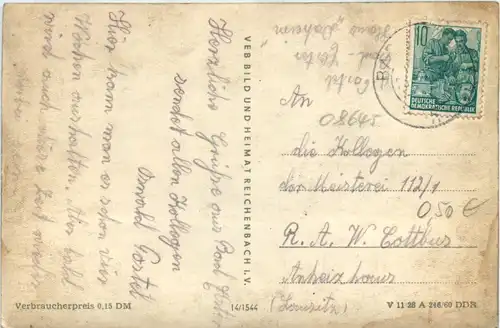 Herzliche Grüße aus Bad Elster
sendet allen Kollegen
Oswald Postel
Hier kann man es schon vier
Wochen aushalten. Aber bald
wird auch diese Zeit wieder
VEB BILD UND HEIMAT REICHENBACH I. V.
Verbraucherpreis 0,15 DM
14/1544
V 11 28 A 346/60 DDR
10
DEUTSCHE
DEMOKRATISCHE REPUBLIK
An
08645
die Kollegen
der Meisterei 112/1
0,50 €
R. A. W. Cottbus
Anheizhaus
(Lausitz)